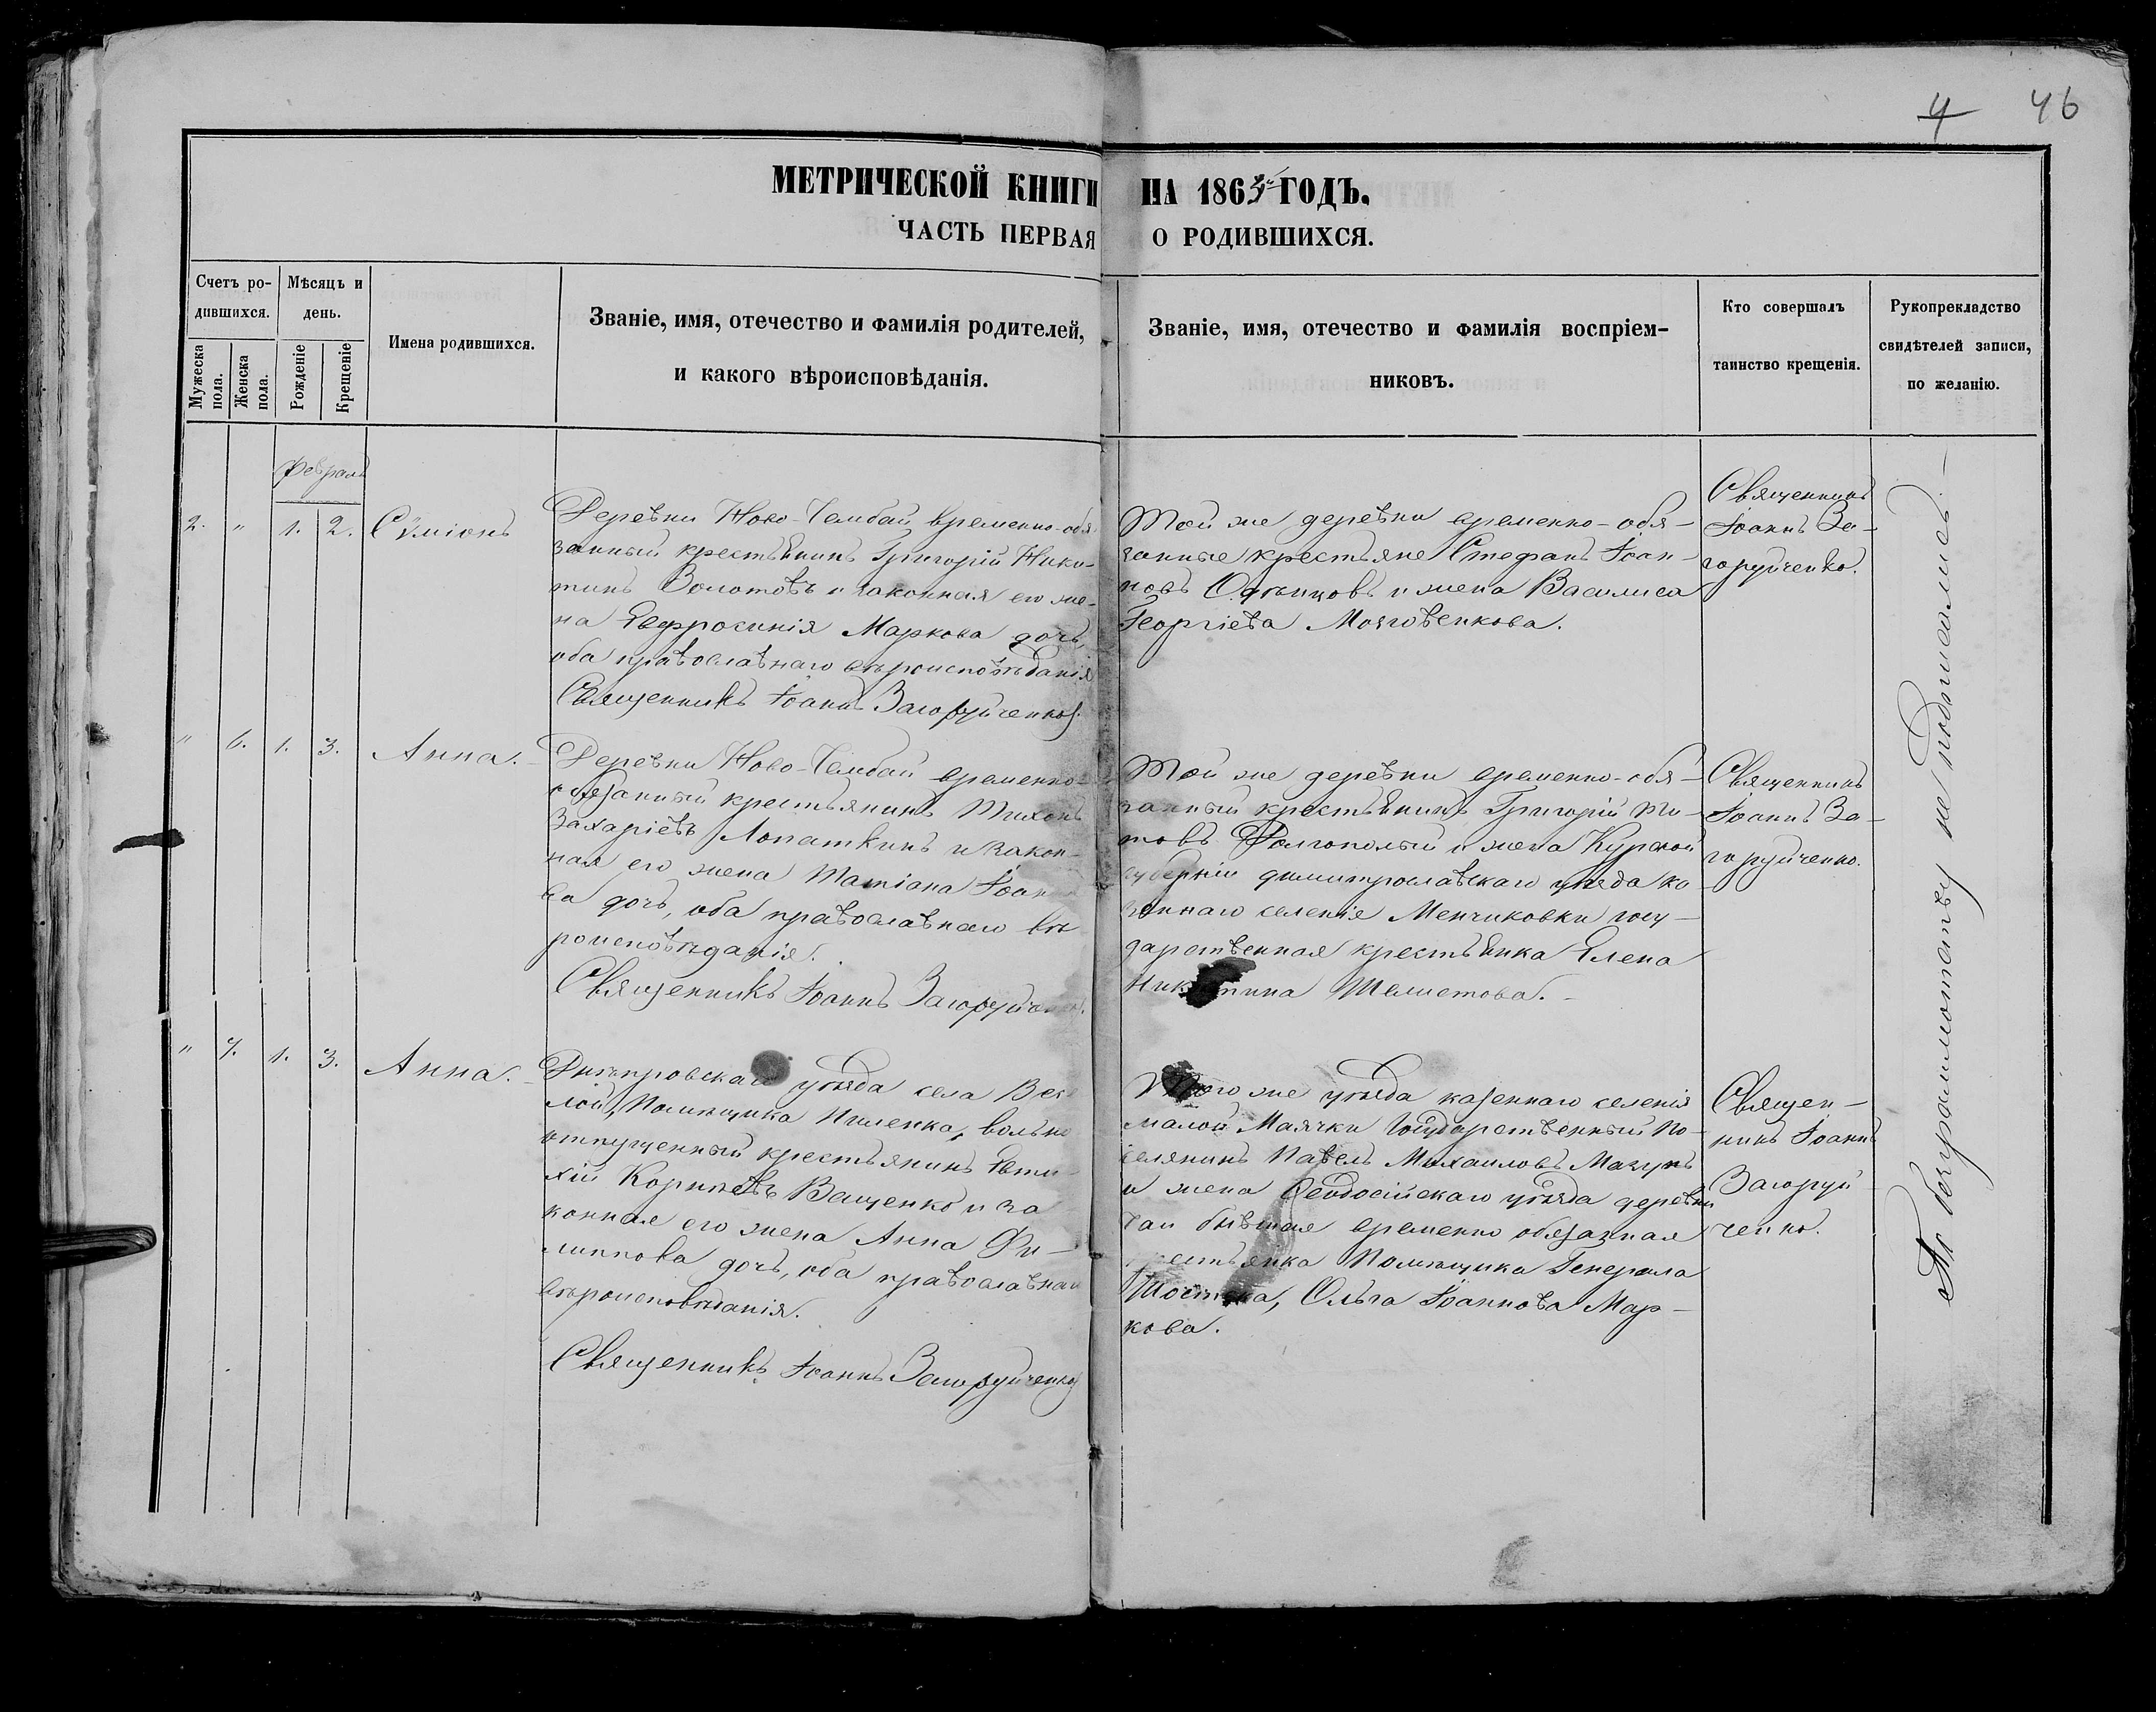 4 46
МЕТРИЧЕСКОЙ КНИГИ НА 1863й ГОДЪ.
ЧАСТЬ ПЕРВАЯ О РОДИВШИХСЯ.
Счетъ ро-
дившихся.
Мужеска
пола.
Женска
пола.
Мѣсяцъ и
день.
Рожденіе
Крещеніе
Имена родившихся.
Званіе, имя, отечество и фамилія родителей,
и какого вѣроисповѣданія.
Званіе, имя, отечество и фамилія воспріем-
никовъ.
Кто совершалъ
таинство крещенія.
Рукоприкладство
свидѣтелей записи,
по желанію.
Февраль
2. " 1. 2. Сѷміонъ
Деревни Ново-Чембай временно-обя-
занный крестьянинъ Григорій Ники-
тинъ Золотовъ и законная его же-
на Евфросинія Маркова дочь,
оба православнаго вѣроисповѣданія
Священникъ Іоаннъ Загоруйченко
Той же деревни временно-обя-
занные крестьяне Стефанъ Іоан-
новъ и жена Василиса
Георгіева
Священникъ
Іоаннъ За-
горуйченко.
" 6. 1. 3. Анна.
Деревни Ново-Чембай временно-
обязанный крестьянинъ Тихонъ
Захаріевъ Лопаткинъ и закон-
ная его жена Татіана Іоанно-
ва дочь, оба православнаго вѣ-
роисповѣданія.
Священникъ Іоаннъ Загоруйченко.
Той же деревни временно-обя-
занный крестьянинъ Григорій Ти-
товъ Долгополый и жена Курской
губерніи димитрославскаго уѣзда ка-
зеннаго селенія Менчиковки госу-
дарственная крестьянка Елена
Никитина Шелистова.
Священникъ
Іоаннъ За-
горуйченко.
" 7. 1. 3. Анна.
Днѣпровскаго уѣзда села Весе-
лой, Помѣщика Пиленка, вольно
отпущенный крестьянинъ Евти-
хій Корнѣевъ Ващенко и за-
конная его жена Анна Фи-
липпова дочь, оба православнаго
вѣроисповѣданія.
Священникъ Іоаннъ Загоруйченко
Того же уѣзда казеннаго селенія
малой Маячки Государственный по-
селянинъ Павелъ Михаиловъ Мачунъ
и жена Ѳеодосійскаго уѣзда деревни
бывшая временно обязанная
крестьянка Помѣщика Генерала
Ольга Іоаннова Мар-
кова.
Священ-
никъ Іоаннъ
Загоруй-
ченко.
По безграмотству не подписались.